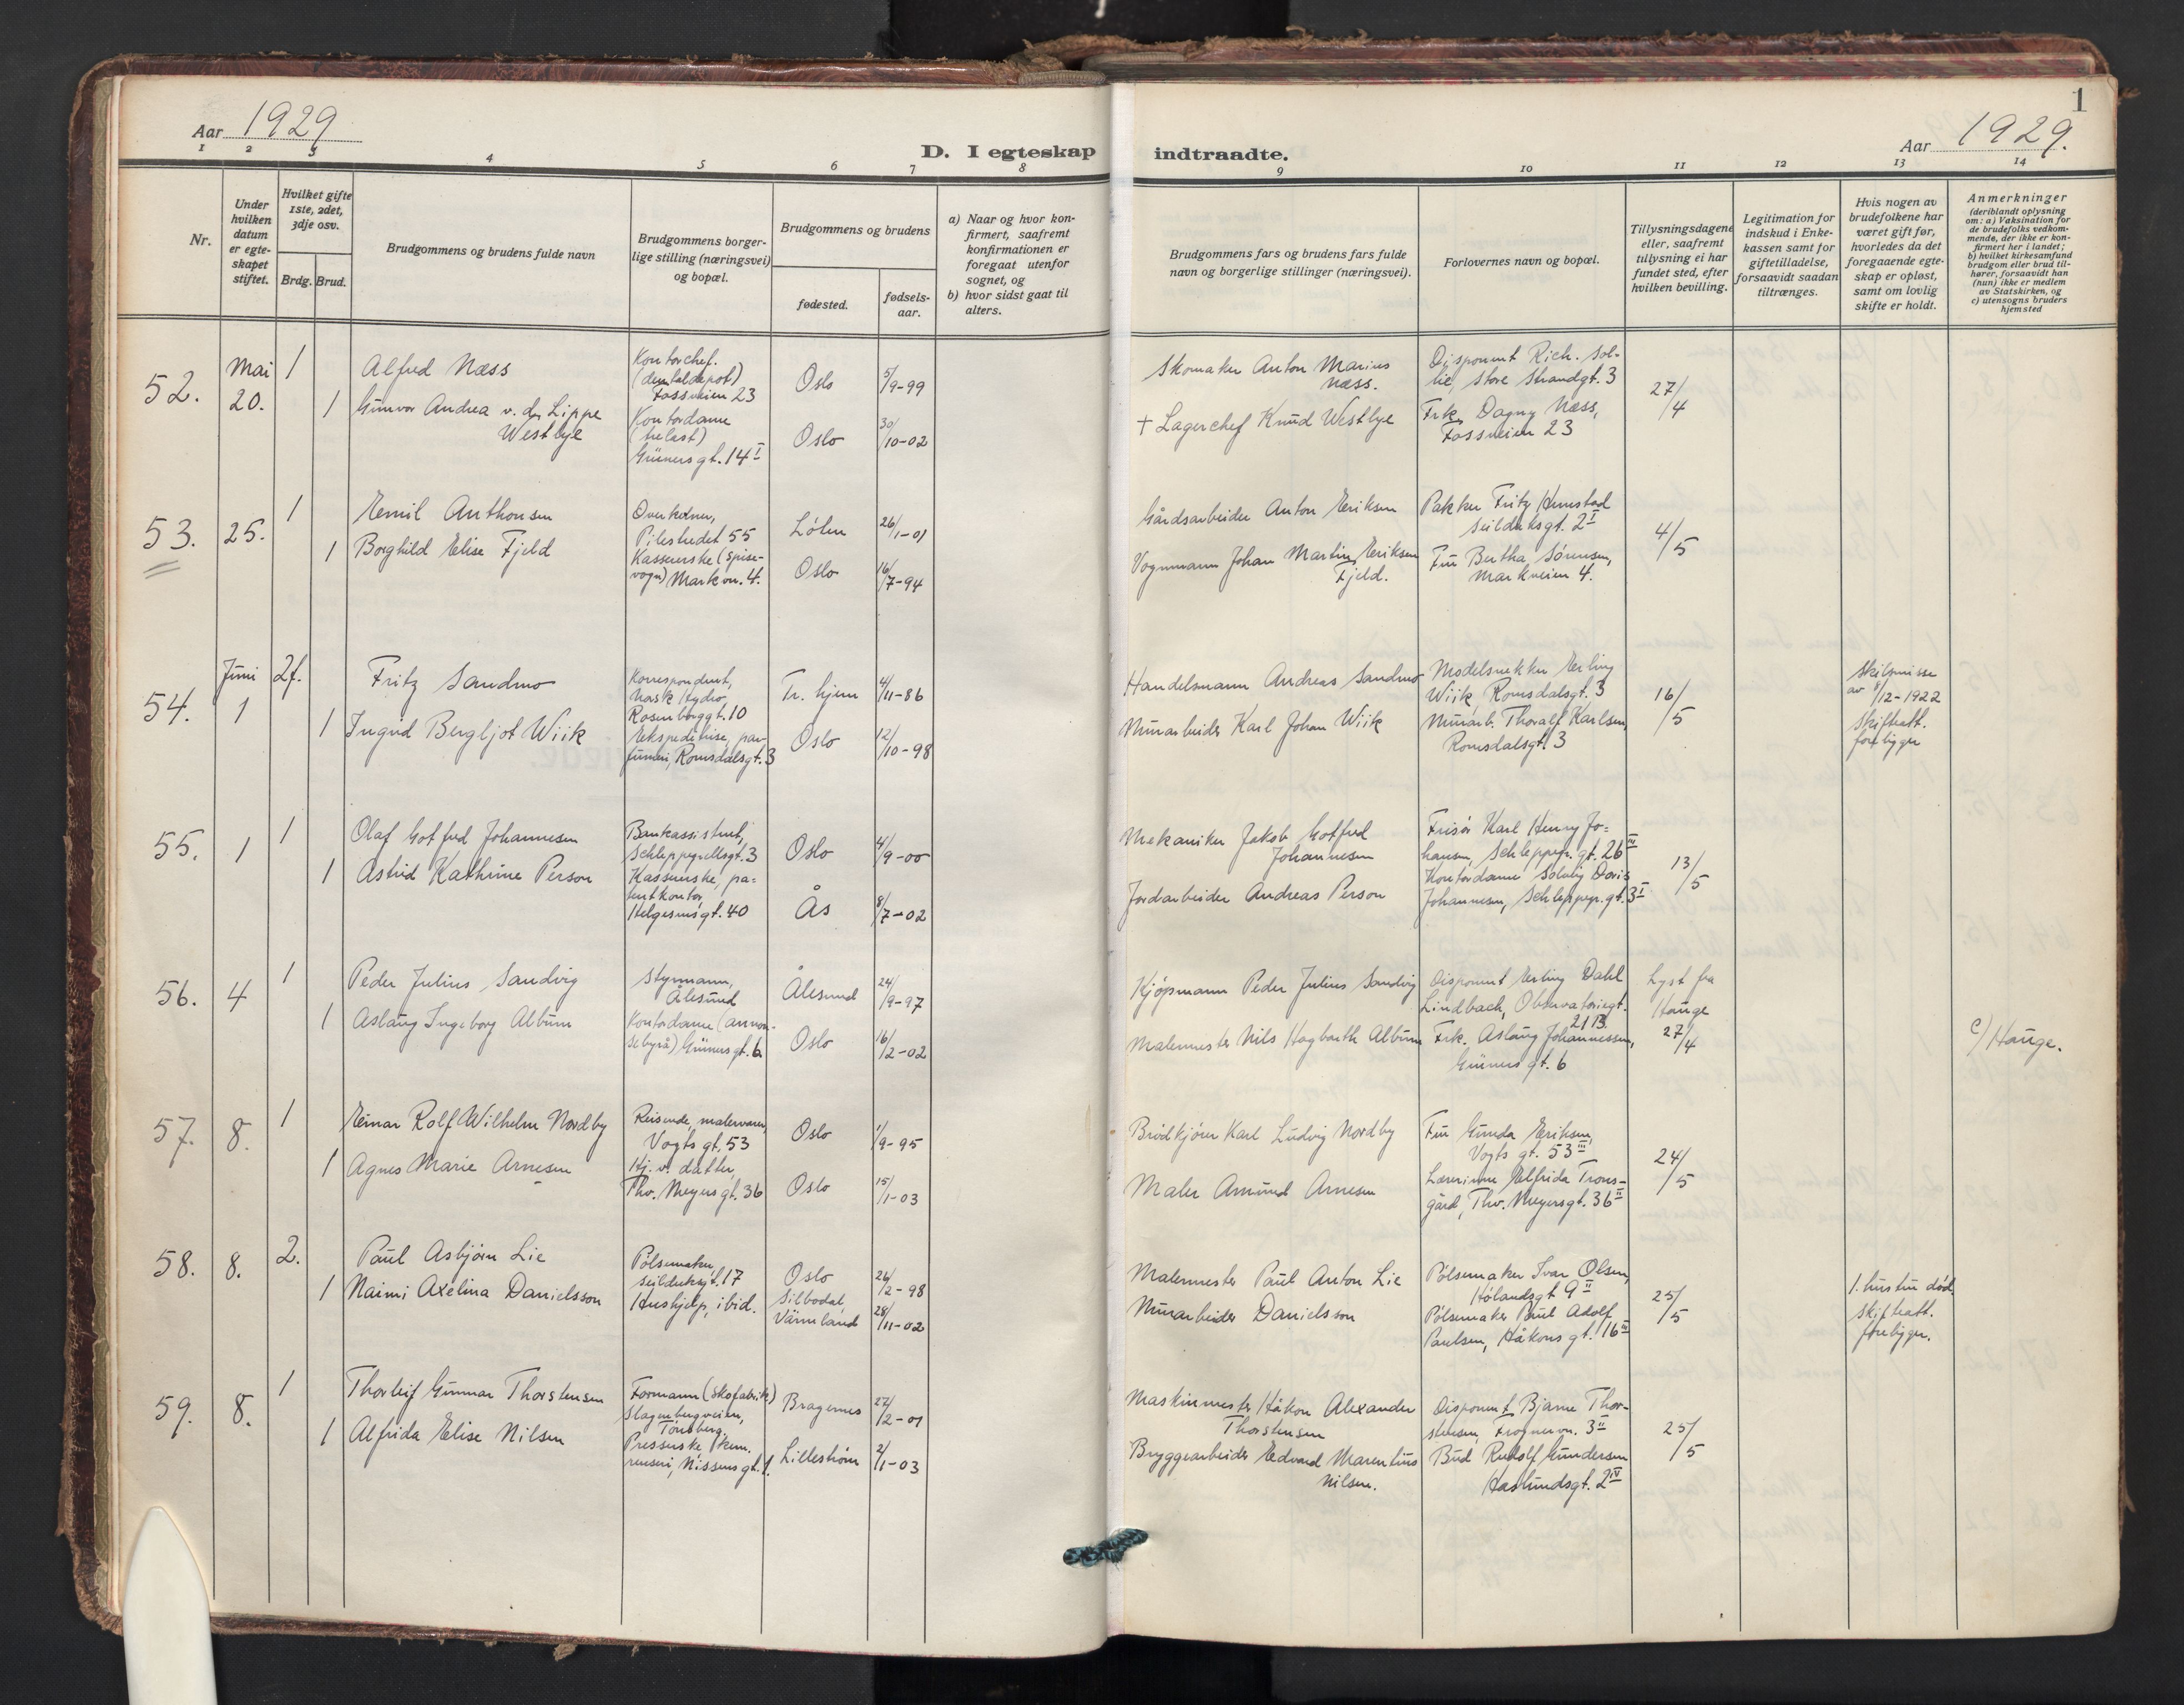 Aar 1929
D. I egteskap indtraadte.
Aar 1929.
1
1 2 3 4 5 6 7 8 9 10 11 12 13 14
Nr.
Under
hvilken
datum
er egte-
skapet
stiftet.
Hvilket gifte
1ste, 2det,
3dje osv.
Brdg. Brud.
Brudgommens og brudens fulde navn
Brudgommens borger-
lige stilling (næringsvei)
og bopæl.
Brudgommens og brudens
fødested.
fødsels-
aar.
a) Naar og hvor kon-
firmert, saafremt
konfirmationen er
foregaat utenfor
sognet, og
b) hvor sidst gaat til
alters.
Brudgommens fars og brudens fars fulde
navn og borgerlige stillinger (næringsvei).
Forlovernes navn og bopæl.
Tillysningsdagene
eller, saafremt
tillysning ei har
fundet sted, efter
hvilken bevilling.
Legitimation for
indskud i Enke-
kassen samt for
giftetilladelse,
forsaavidt saadan
tiltrænges.
Hvis nogen av
brudefolkene har
været gift før,
hvorledes da det
foregaaende egte-
skap er opløst,
samt om lovlig
skifte er holdt.
Anmerkninger
(deriblandt oplysning
om: a) Vaksination for
de brudefolks vedkom-
mende, der ikke er kon-
firmert her i landet;
b) hvilket kirkesamfund
brudgom eller brud til-
hører, forsaavidt han
(hun) ikke er medlem
av Statskirken, og
c) utensogns bruders
hjemsted
52.
Mai
20.
1
Alfred Næss
Kontorchef.
(dentaldepot)
Fossveien 23
Oslo
5/9-99
Skomaker Anton Marius
Næss.
Disponent Rich. Sol-
lie, Store Strandgt. 3
27/4
1
Gunvor Andrea v. der Lippe
Westbye
Kontordame
(trelast)
Grüners gt. 14 I
Oslo
30/10-02
+ Lagerchef Knud Westbye
Frk. Dagny Næss,
Fossveien 23
53.
25.
1
Emil Anthonsen
Overkelner,
Pilestredet 55
Løten
26/1-01
Gårdsarbeider Anton Eriksen
Pakker Fritz Hemstad
Seilduksgt. 2 I
4/5
1
Borghild Elise Fjeld
Kassererske (spise-
vogn) Markvn. 4.
Oslo
16/7-94
Vognmann Johan Martin Eriksen
Fjeld.
Fru Bertha Sørensen,
Markveien 4.
54.
Juni
1
2f.
Fritz Sandmo
Korrespondent,
Norsk Hydro
Rosenborggt. 10
Tr. hjem
4/11-86
Handelsmann Andreas Sandmo
Modelsnekker Erling
Wiik, Romsdalsgt. 3
16/5
Skilsmisse
av 8/2-1922
Skifteatt.
foreligger
1
Ingrid Bergljot Wiik
Ekspeditrise, par-
fumeri, Romsdalsgt. 3
Oslo
12/10-98
Murarbeider Karl Johan Wiik
Murarb. Thoralf Karlsen,
Romsdalsgt. 3
55.
1
1
Olaf Gotfred Johannesen
Bankassistent,
Schleppegrellsgt. 3
Oslo
4/9-00
Mekaniker Jakob Gotfred
Johannesen
Frisør Karl Henry Jo=
hansen, Schleppegr. gt. 26 III
13/5
1
Astrid Kathrine Person
Kassererske, pa=
tentkontor,
Helgesens gt. 40
Ås
8/7-02
Jordarbeider Andreas Person
Kontordame Solveig Doris
Johannesen, Schleppegr. gt. 3 I
56.
4
1
Peder Julius Sandvig
Styrmann,
Ålesund
Ålesund
24/9-97
Kjøpmann Peder Julius Sandvig
Disponent Erling Dahl
Lindbach, Observatoriegt.
21 B.
Lyst fra
Hauge
27/4
1
Aslaug Ingeborg Album
Kontordame (annon-
sebyrå) Grüners gt. 6
Oslo
16/2-02
Malermester Nils Hagbarth Album
Frk. Aslaug Johannessen,
Grüners gt. 6
c) Hauge.
57.
8.
1
Einar Rolf Wilhelm Nordby
Reisende, malervarer,
Vogts gt. 53
Oslo
1/9-95
Brødkjører Karl Ludvig Nordby
Fru Gunda Eriksen,
Vogts gt. 53 III
24/5
1
Agnes Marie Arnesen
Hj. v. datter,
Thv. Meyers gt. 36
Oslo
15/1-03
Maler Amund Arnesen
Lærerinne Elfrida Trons-
gård, Thv. Meyersgt. 36 II
58.
8.
2.
Paul Asbjørn Lie
Pølsemaker,
Seilduksgt. 17
Oslo
24/2-98
Malermester Paul Anton Lie
Pølsemaker Ivar Olsen,
Hølandsgt 9 II
25/5
1. hustru død,
skifteatt.
foreligger.
1
Naimi Axelina Danielsson
Hushjelp, ibid.
Silbodal,
Värmland
28/11-02
Murarbeider Danielsson
Pølsemaker Paul Adolf
Paulsen, Håkons gt. 16 III
59.
8.
1
Thorleif Gunnar Thorstensen
Formann (skofabrikk)
Slagenbergveien,
Tønsberg.
Bragernes
27/2-01
Maskinmester Håkon Alexander
Thorstensen
Disponent Bjarne Thor-
stensen, Frognervn. 3 II
25/5
1
Alfrida Elise Nilsen
Presserske, kem.
renseri, Nissens gt. 1.
Lillestrøm
2/1-03
Bryggearbeider Edvard Marentius
Nilsen.
Bud Rudolf Gundersen
Haslundsgt. 2 IV